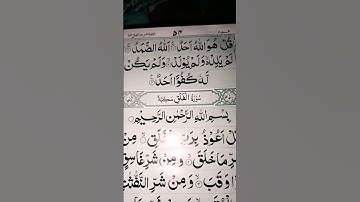 قُلْ هُوَ اللّٰهُ اَحَدٌ ۚ اَللّٰهُ الصَّمَدُ ۚ
لَمْ يَلِدْ ۙ وَلَمْ يُوْلَدْ ۙ وَلَمْ يَكُنْ
لَّهٗ كُفُوًا اَحَدٌ
سُوْرَةُ الْفَلَقِ مَكِّيَّةٌ
بِسْمِ اللّٰهِ الرَّحْمٰنِ الرَّحِيْمِ
اَعُوْذُ بِرَبِّ
مَا خَلَقَ ۙ وَمِنْ شَرِّ غَاسِقٍ
وَقَبَ ۙ وَمِنْ شَرِّ النَّفّٰثٰتِ